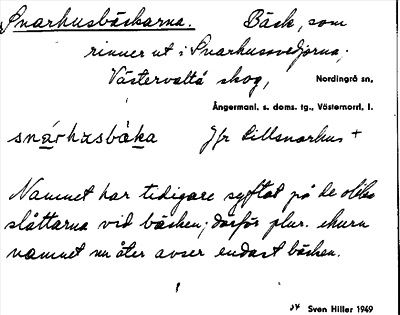 Snarhusbäckarna. Bäck, som
rinner ut i Snarhussvedjorna,
Västervattå skog, Nordingrå sn,
Ångermanl. s. doms. tg., Västernorrl. l.
snárhusbäka Jfr Lillsnarhus +
Namnet har tidigare syftat på de olika
slåttarna vid bäcken; därför plur. ehuru
namnet nu åter avser endast bäcken.
Sven Hiller 1949